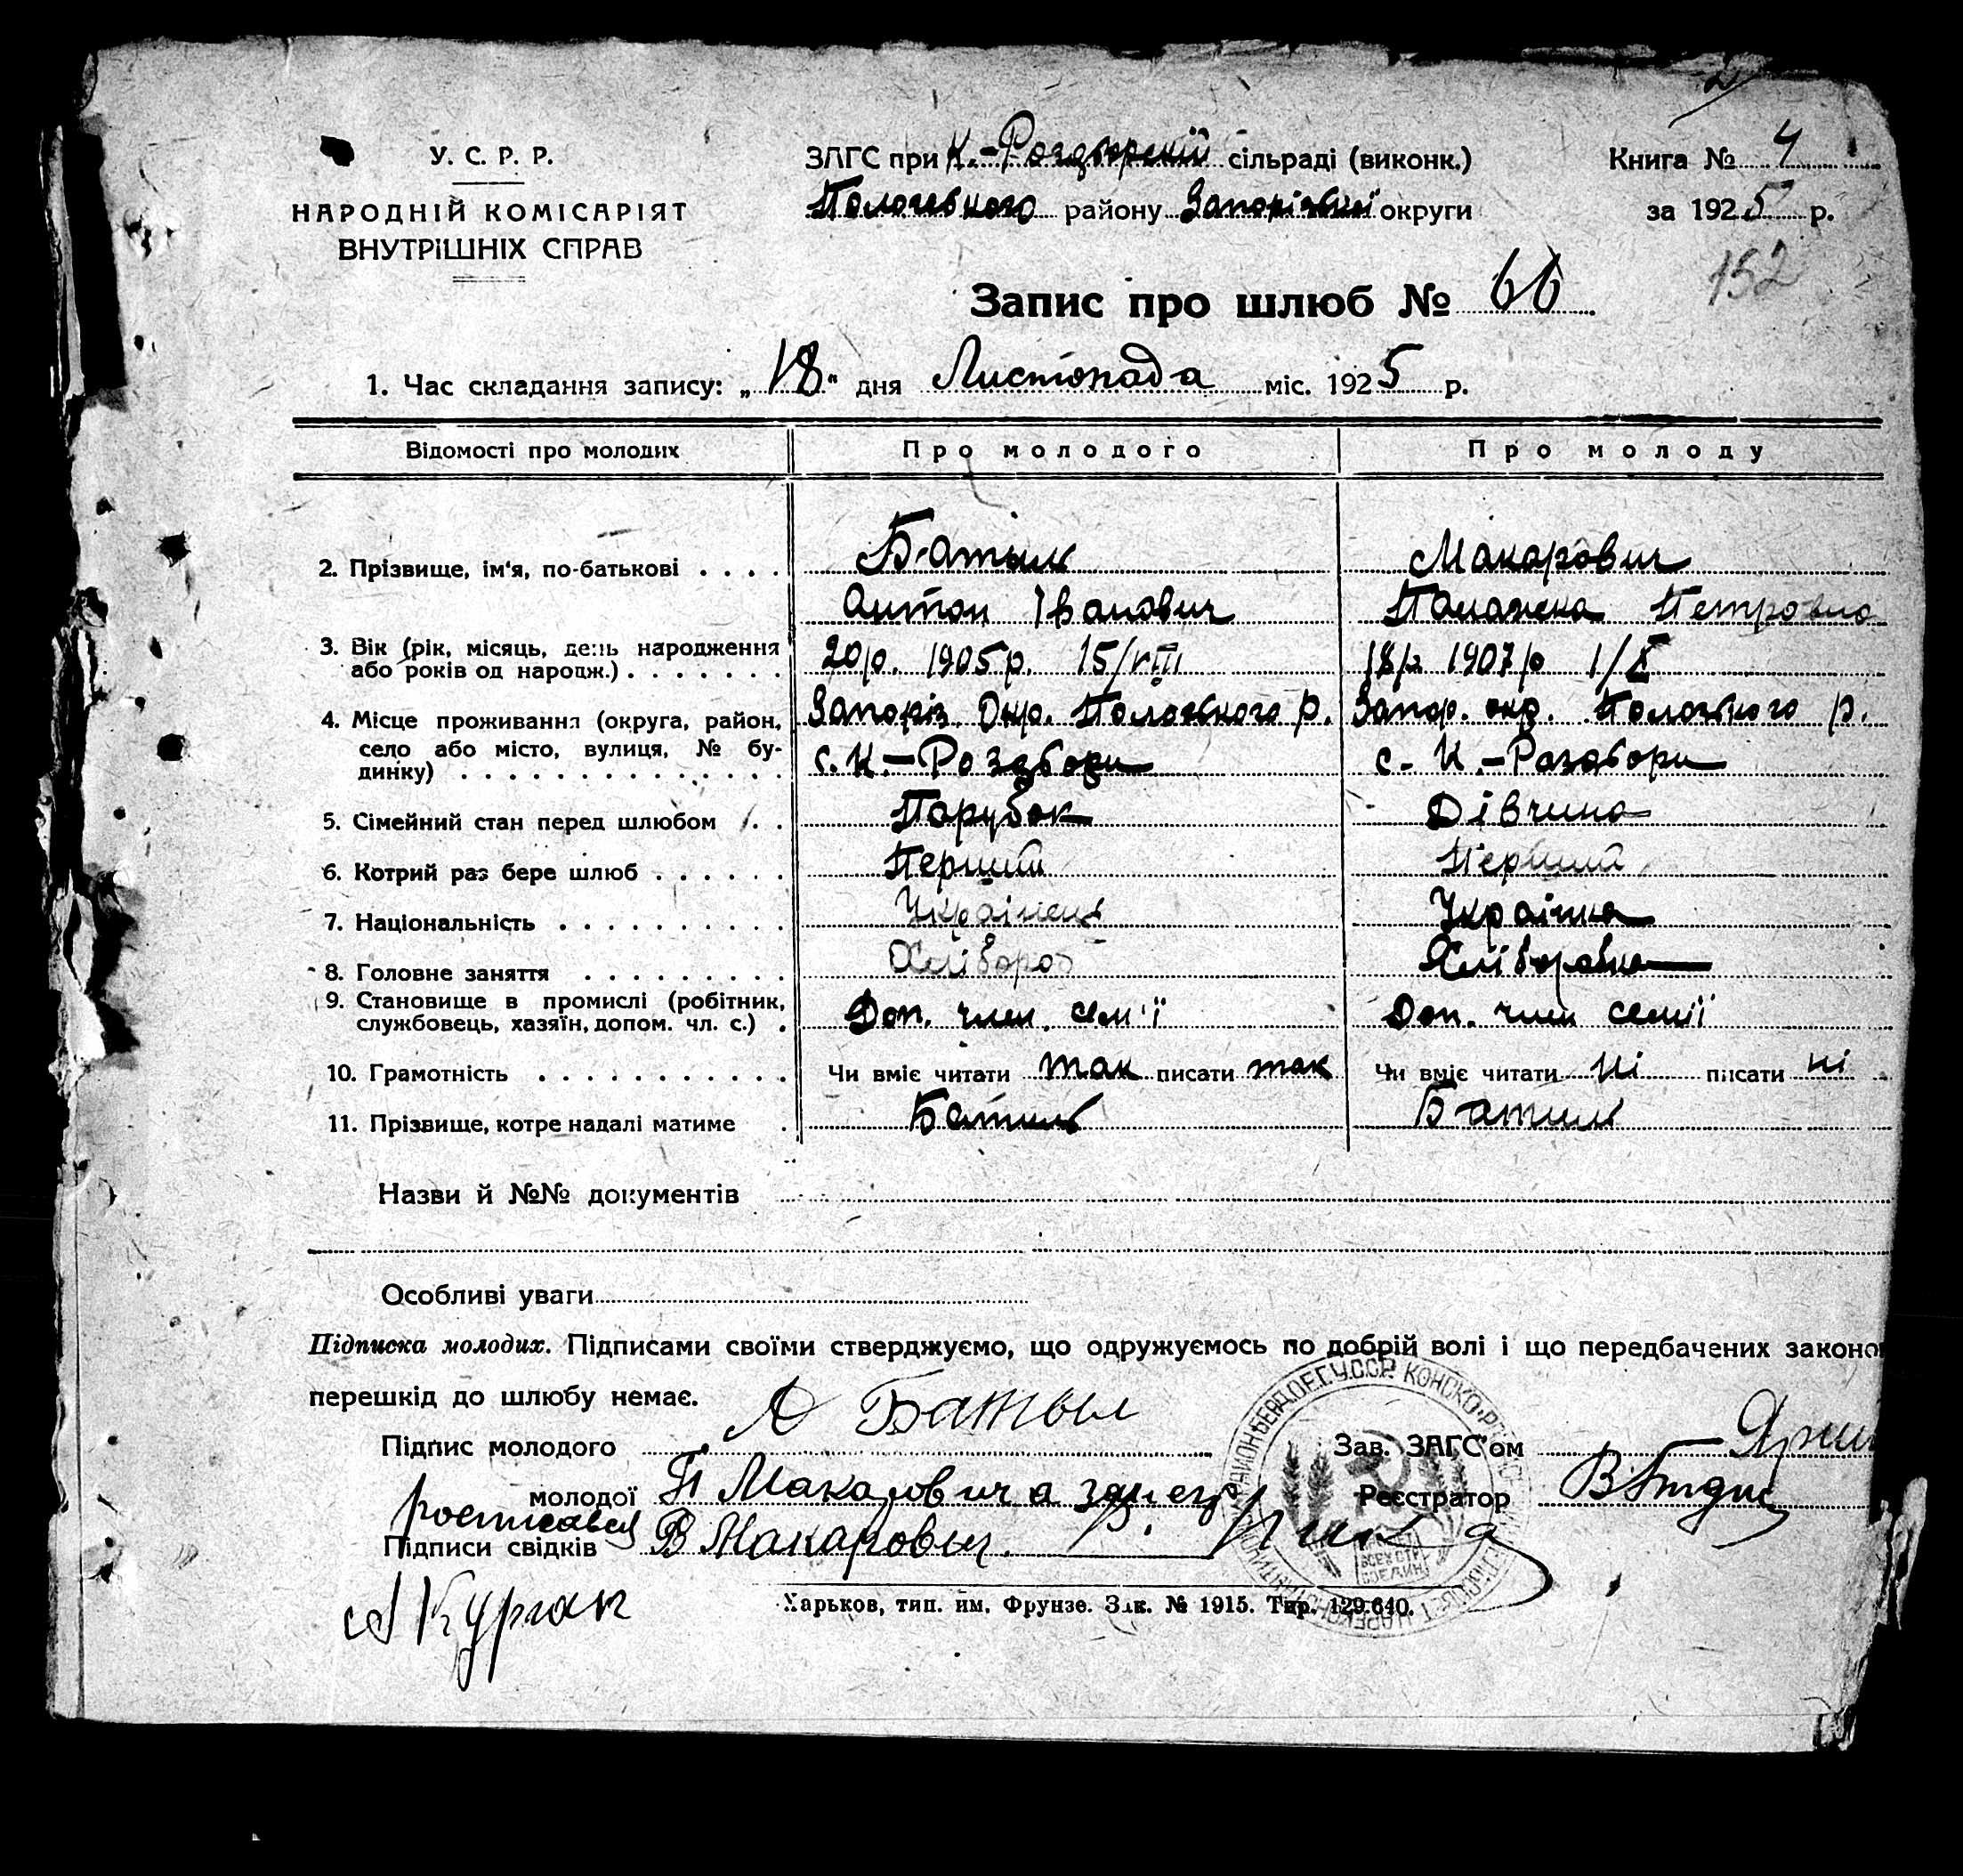 У. С. Р. Р.
НАРОДНІЙ КОМІСАРІЯТ
ВНУТРІШНІХ СПРАВ
ЗАГС при К.-Роздорскій сільраді (виконк.)
Пологовського району Запорізької округи
Книга № 4
за 1925 р.
152
Запис про шлюб № 66
1. Час складання запису: „18“ дня Листопада міс. 1925 р.
Відомості про молодих Про молодого Про молоду
2. Прізвище, ім'я, по-батькові . . . . Батиль Макарович
Антон Іванович Палажка Петровна
3. Вік (рік, місяць, день народження 20 р. 1905 р. 15/VIII 18 р 1907 р 1/X
або років од народж.) . . . . . . .
4. Місце проживання (округа, район, Запоріз. Окр. Положського р. Запор. окр. Положського р.
село або місто, вулиця, № бу- с. К.-Роздори с. К.-Раздори
динку) . . . . . . . . . . . . . .
5. Сімейний стан перед шлюбом . . Парубок Дівчина
6. Котрий раз бере шлюб . . . . . . Перший Перший
7. Національність . . . . . . . . . . Українець Українка
8. Головне заняття . . . . . . . . Хлібороб Хліборобка
9. Становище в промислі (робітник, Доп. член. сем'ї Доп. член семії
службовець, хазяїн, допом. чл. с.) .
10. Грамотність . . . . . . . . . . . Чи вміє читати так писати так Чи вміє читати ні писати ні
11. Прізвище, котре надалі матиме . Батиль Батиль
Назви й №№ документів
Особливі уваги
Підписка молодих. Підписами своїми стверджуємо, що одружуємось по добрій волі і що передбачених законо
перешкід до шлюбу немає.
Підпис молодого А Батыл Зав. ЗАГС'ом
молодої П Макарович а за нег Реєстратор
росписався
Підписи свідків В Макарович.
А Курган
Харьков, тип. им. Фрунзе. Зак. № 1915. Тир. 129.640.